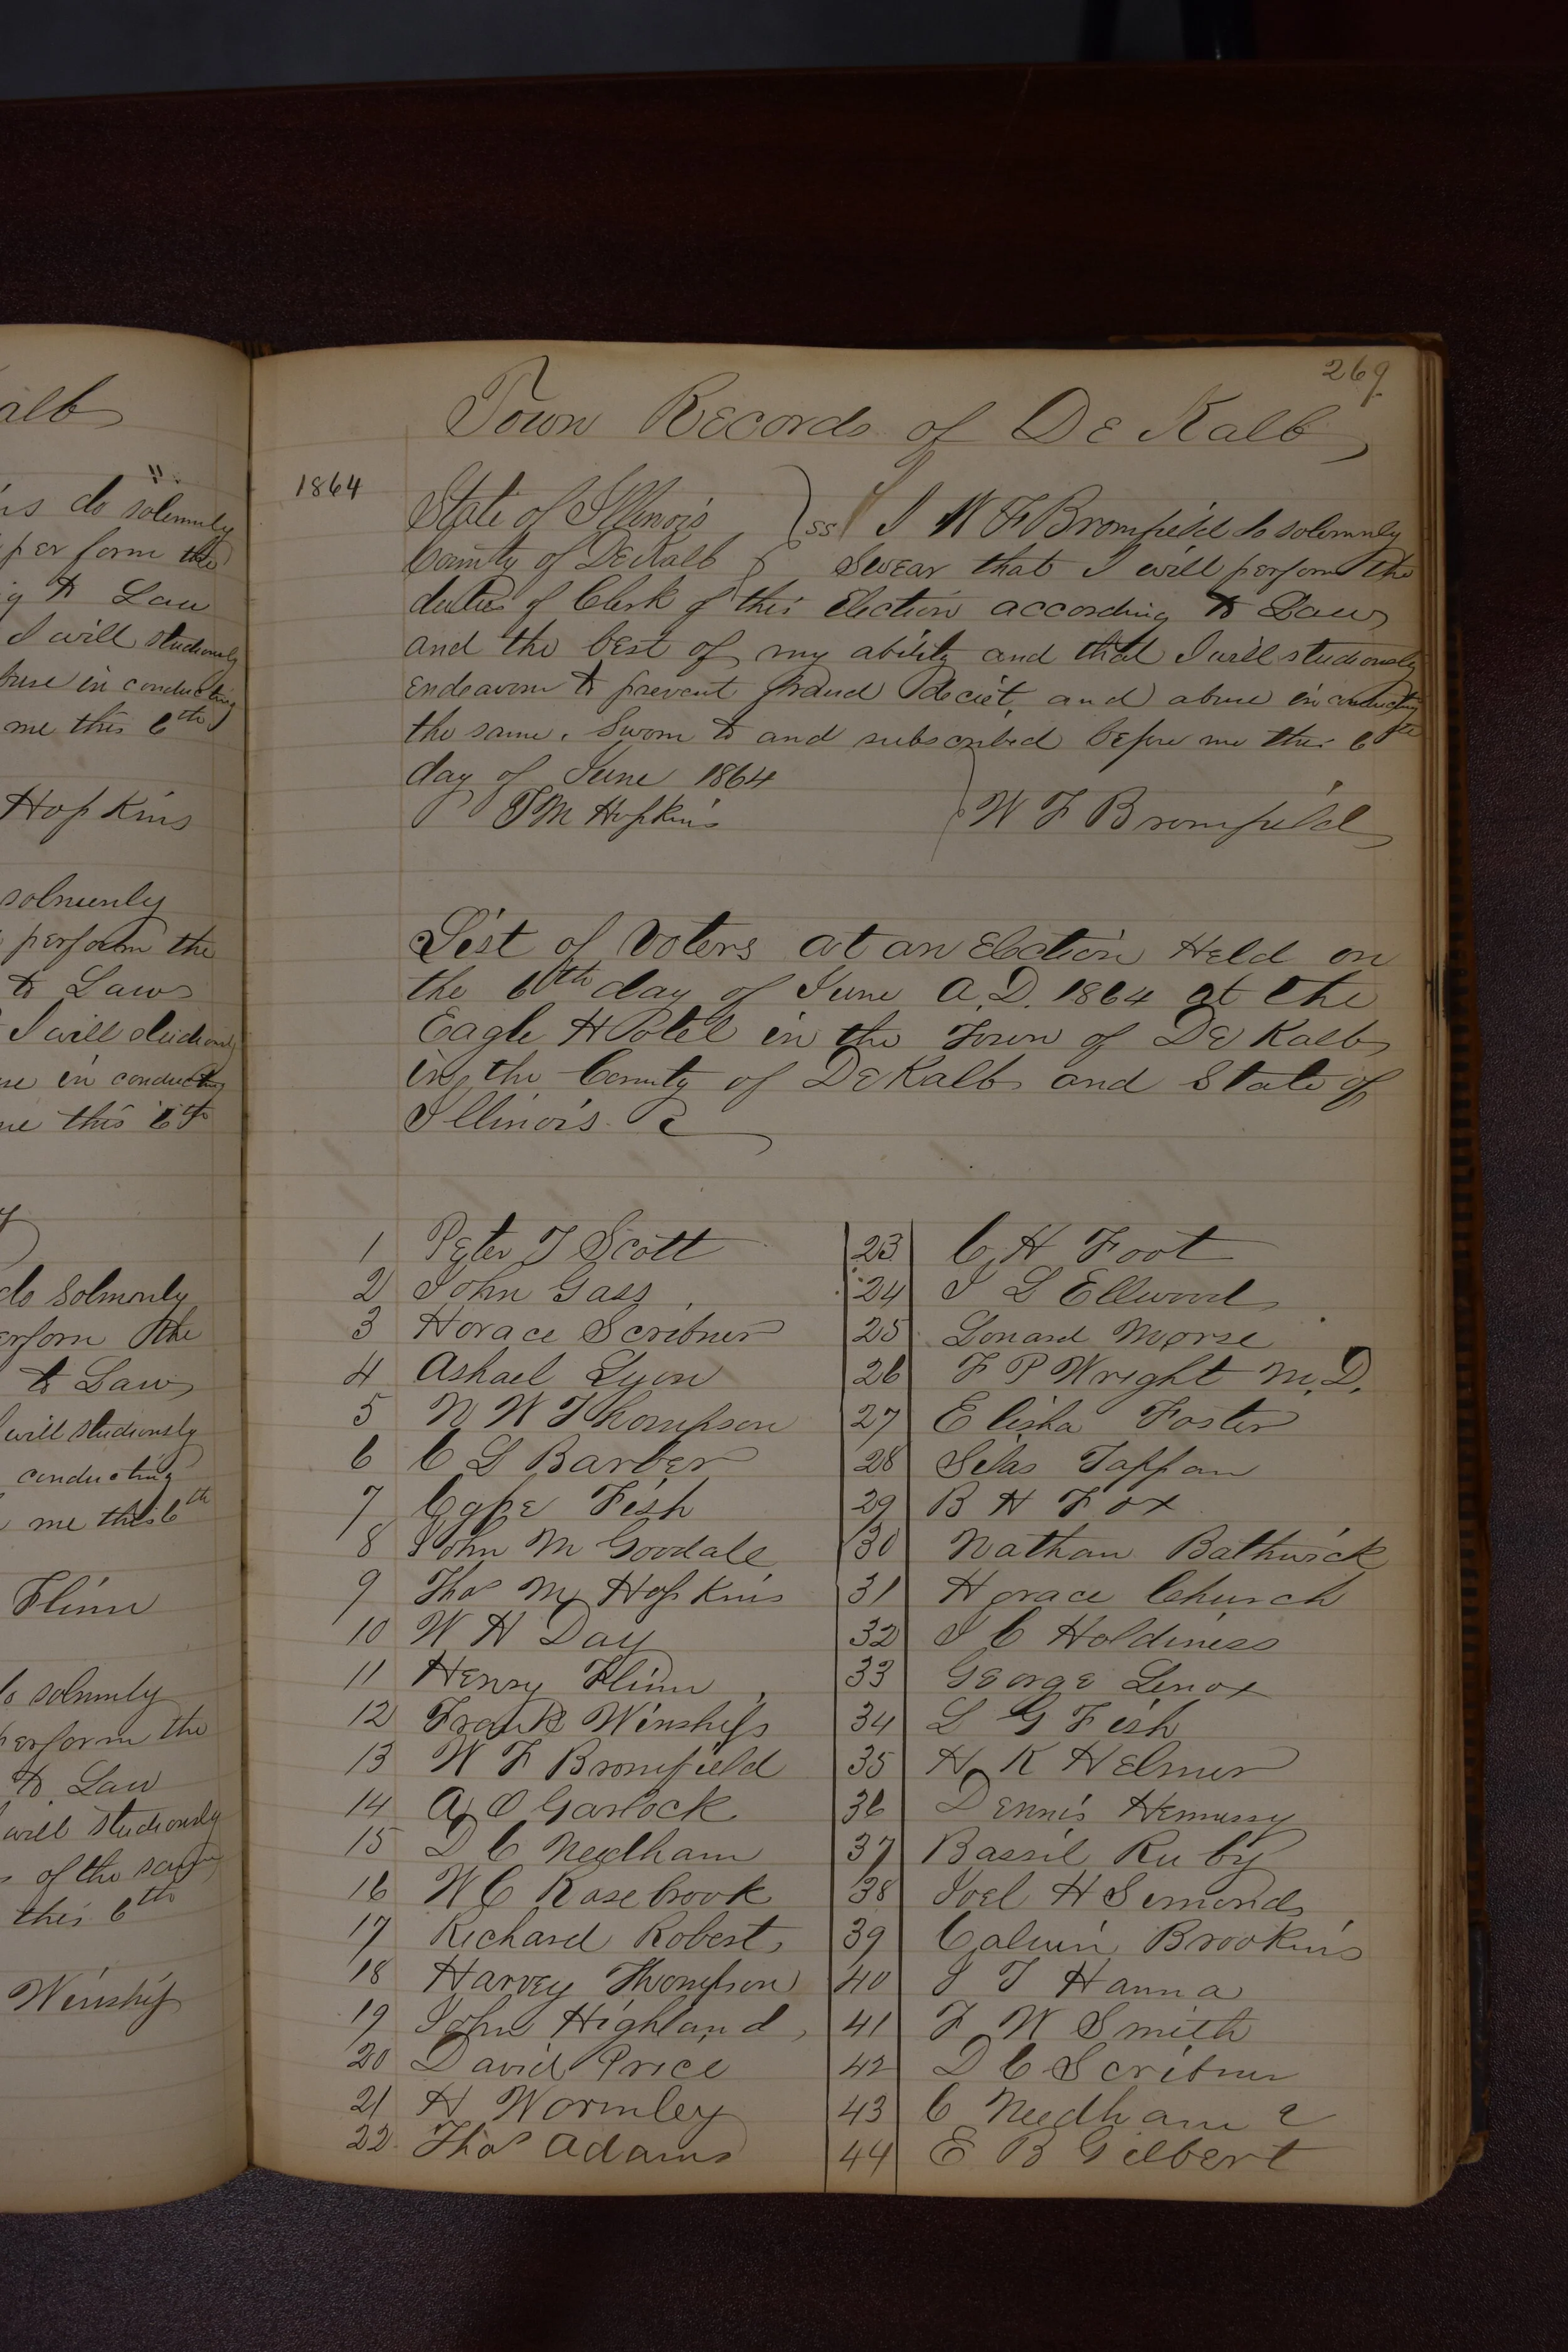 alb
is do solemnly
per form the
g to Law
I will studiously
buse in conducting
me this 6th
Hopkins
solmenly
perform the
to Law
I will studiously
se in conducting
me this 6th
do Solmonly
erform the
to Law
will studiously
conducting
me this 6th
Flinn
do solmnly
perform the
to Law
will studiously
s of the same
this 6th
Winship
269
Town Records of De Kalb
1864
State of Illinois } ss I W F Bromfield do solemnly
County of DeKalb } Swear that I will perform the
duties of Clerk of this Election according to Law
and the best of my ability and that I will studiously
endeavour to prevent fraud deciet, and abuse in conducting
the same. Sworn to and subscribed before me this 6th
day of June 1864
T M Hopkins } W F Bromfield
List of Voters at an Election Held on
the 6th day of June A.D. 1864 at the
Eagle Hotel in the Town of De Kalb
in the County of DeKalb and State of
Illinois.
1 Peter T Scott 23 C H Foot
2 John Gass 24 I L Ellwood
3 Horace Scribner 25 Lonard Morse
4 Ashael Lyon 26 F P Wright M.D.
5 N W Thompson 27 Elisha Foster
6 C L Barber 28 Silas Tappan
7 Fish 29 B H Fox
8 John M Goodale 30 Nathan Bathrick
9 Thos M Hopkins 31 Horace Church
10 W H Day 32 I C Holdiness
11 Henry Flinn 33 George Lenox
12 Frank Winship 34 L G Fish
13 W F Bromfield 35 H K Helmer
14 A O Garlock 36 Dennis Hennessy
15 D C Needham 37 Bassil Ruby
16 W C Rasebrook 38 Joel H Simonds
17 Richard Roberts 39 Calvin Brookins
18 Harvey Thompson 40 J T Hanna
19 John Highland 41 F W Smith
20 David Price 42 D C Scribner
21 H Wormley 43 C Needham 2
22 Thos Adams 44 E B Gilbert